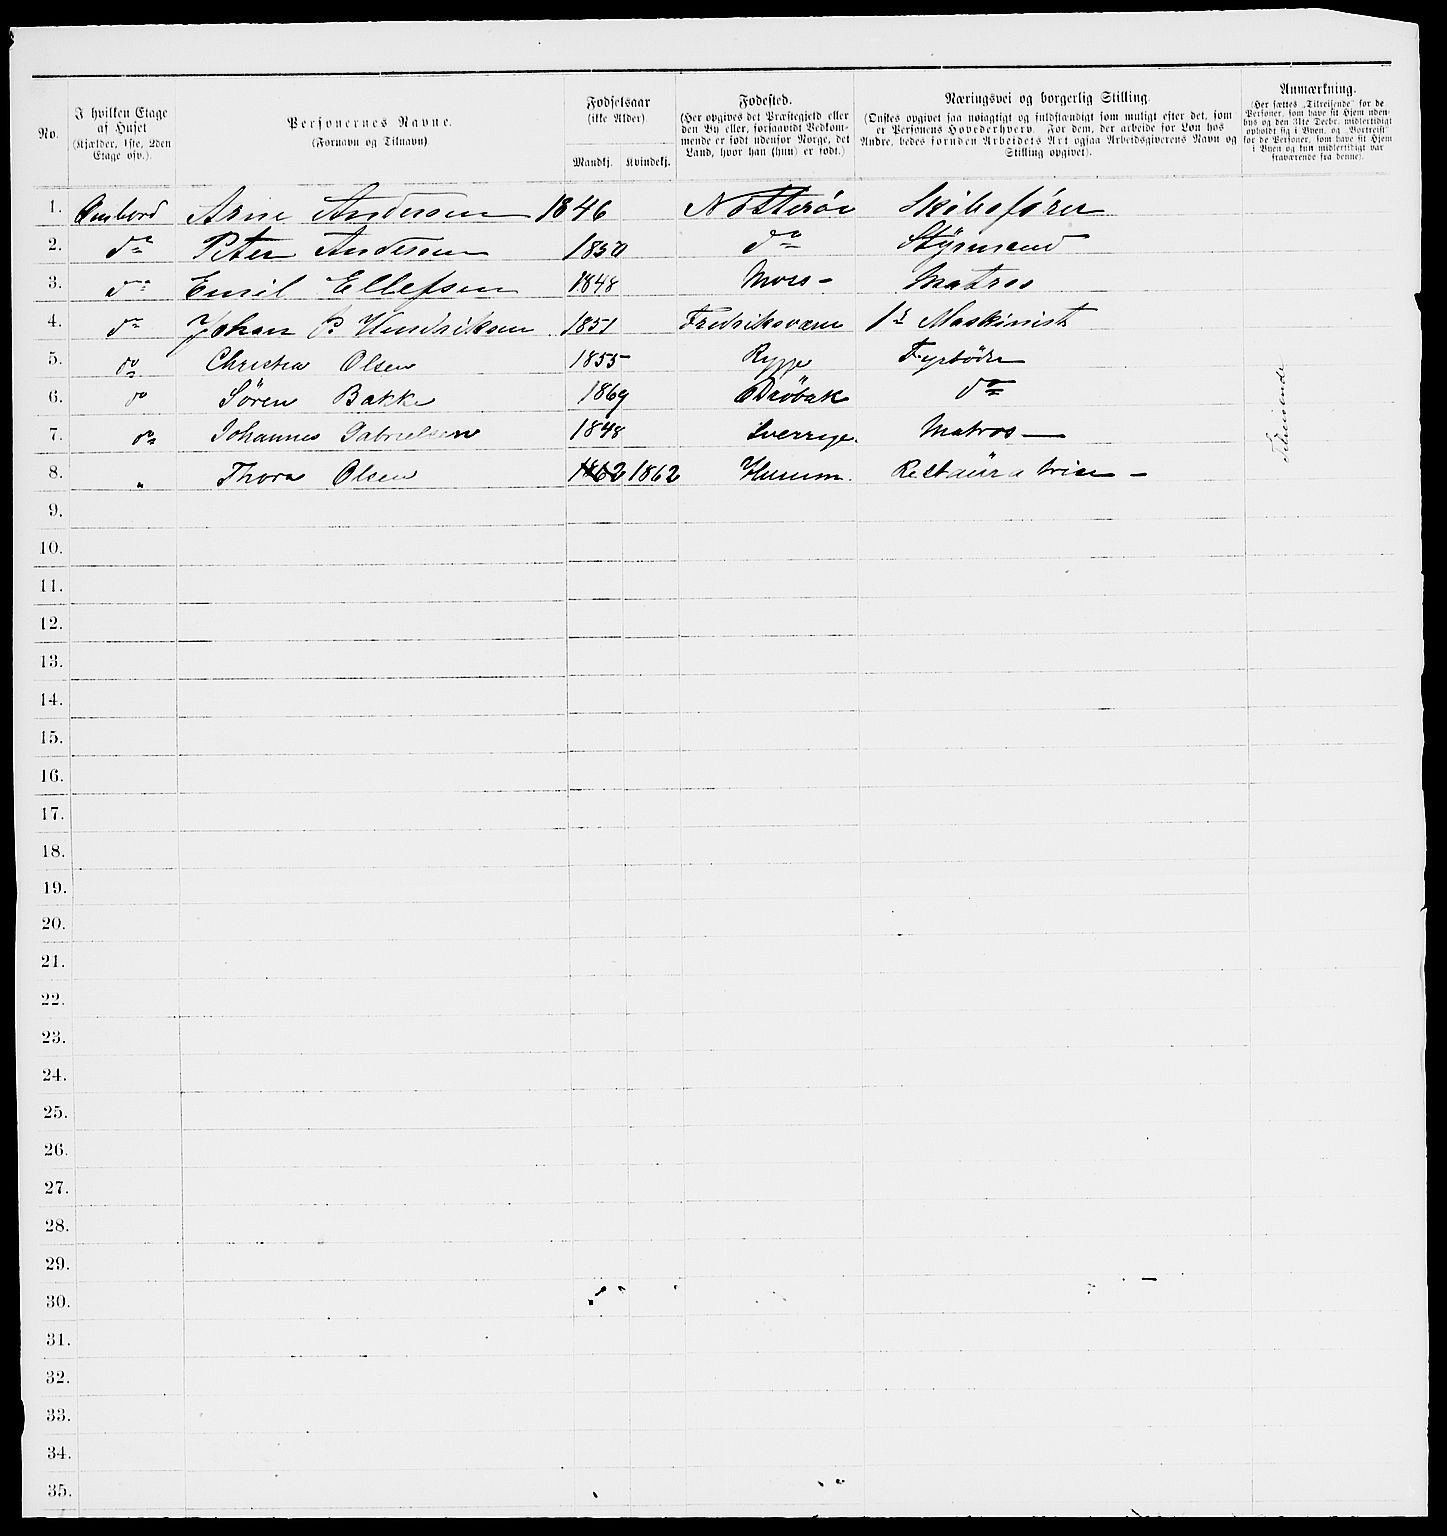 No.
I hvilken Etage af Huset (Kjælder, 1ste, 2den Etage osv.).
Personernes Navne. (Fornavn og Tilnavn)
Fødselsaar (ikke Alder) Mandkj. Kvindekj.
Fødested. (Her opgives det Præstegjeld eller den By eller, forsaavidt Vedkommende er født udenfor Norge, det Land, hvor han (hun) er født.)
Næringsvei og borgerlig Stilling. (Ønskes opgivet saa nøiagtigt og fuldstændigt som muligt efter det, som er Personens Hovederhverv. For dem, der arbeide for Løn hos Andre, bedes foruden Arbeidets Art ogsaa Arbeidsgiverens Navn og Stilling opgivet).
Anmærkning. (Her sættes „Tilreisende" for de Personer, som have sit Hjem udenbys og den 31te Decbr. midlertidigt opholdt sig i Byen, og „Bortreist" for de Personer, som have sit Hjem i Byen og kun midlertidigt var fraværende fra denne).
1. Ombord Arne Andersen 1846 Nøtterøe Skibsfører
2. do Peter Andersen 1850 do Styrmand
3. do Emil Ellefsen 1848 Moss - Matros
4. do Johan P Hendriksen 1851 Fredriksværn 1st Maskinist
5. do Christian Olsen 1855 Rygge Fyrbøder
6. do Søren Bakke 1869 Drøbak do
7. do Johannes Gabrielsen 1848 Sverrige. Matros —
8. " Thora Olsen 1862 1862 Hurum. Restauratrice -
Tilreisende
9.
10.
11.
12.
13.
14.
15.
16.
17.
18.
19.
20.
21.
22.
23.
24.
25.
26.
27.
28.
29.
30.
31.
32.
33.
34.
35.